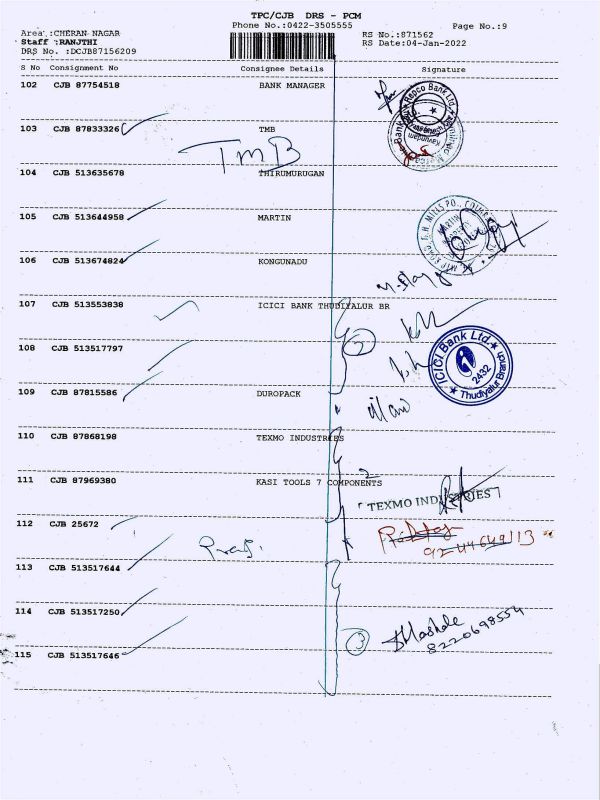 TPC/CJB DRS - PCM
Phone No.:0422-3505555 Page No.:9
Area :CHERAN NAGAR RS No.:871562
Staff :RANJTHI RS Date:04-Jan-2022
DRS No. :DCJB87156209
S No Consignment No Consignee Details Signature
102 CJB 87754518 BANK MANAGER
103 CJB 87833326 TMB
TMB
104 CJB 513635678 THIRUMURUGAN
105 CJB 513644958 MARTIN
106 CJB 513674824 KONGUNADU
107 CJB 513553838 ICICI BANK THUDIYALUR BR
2
108 CJB 513517797
ICICI Bank Ltd.
2432
Thudiyalur Branch
109 CJB 87815586 DUROPACK
110 CJB 87868198 TEXMO INDUSTRIES
111 CJB 87969380 KASI TOOLS 7 COMPONENTS
2
TEXMO INDUSTRIES
112 CJB 25672
113 CJB 513517644
114 CJB 513517250
3
8220698554
115 CJB 513517646